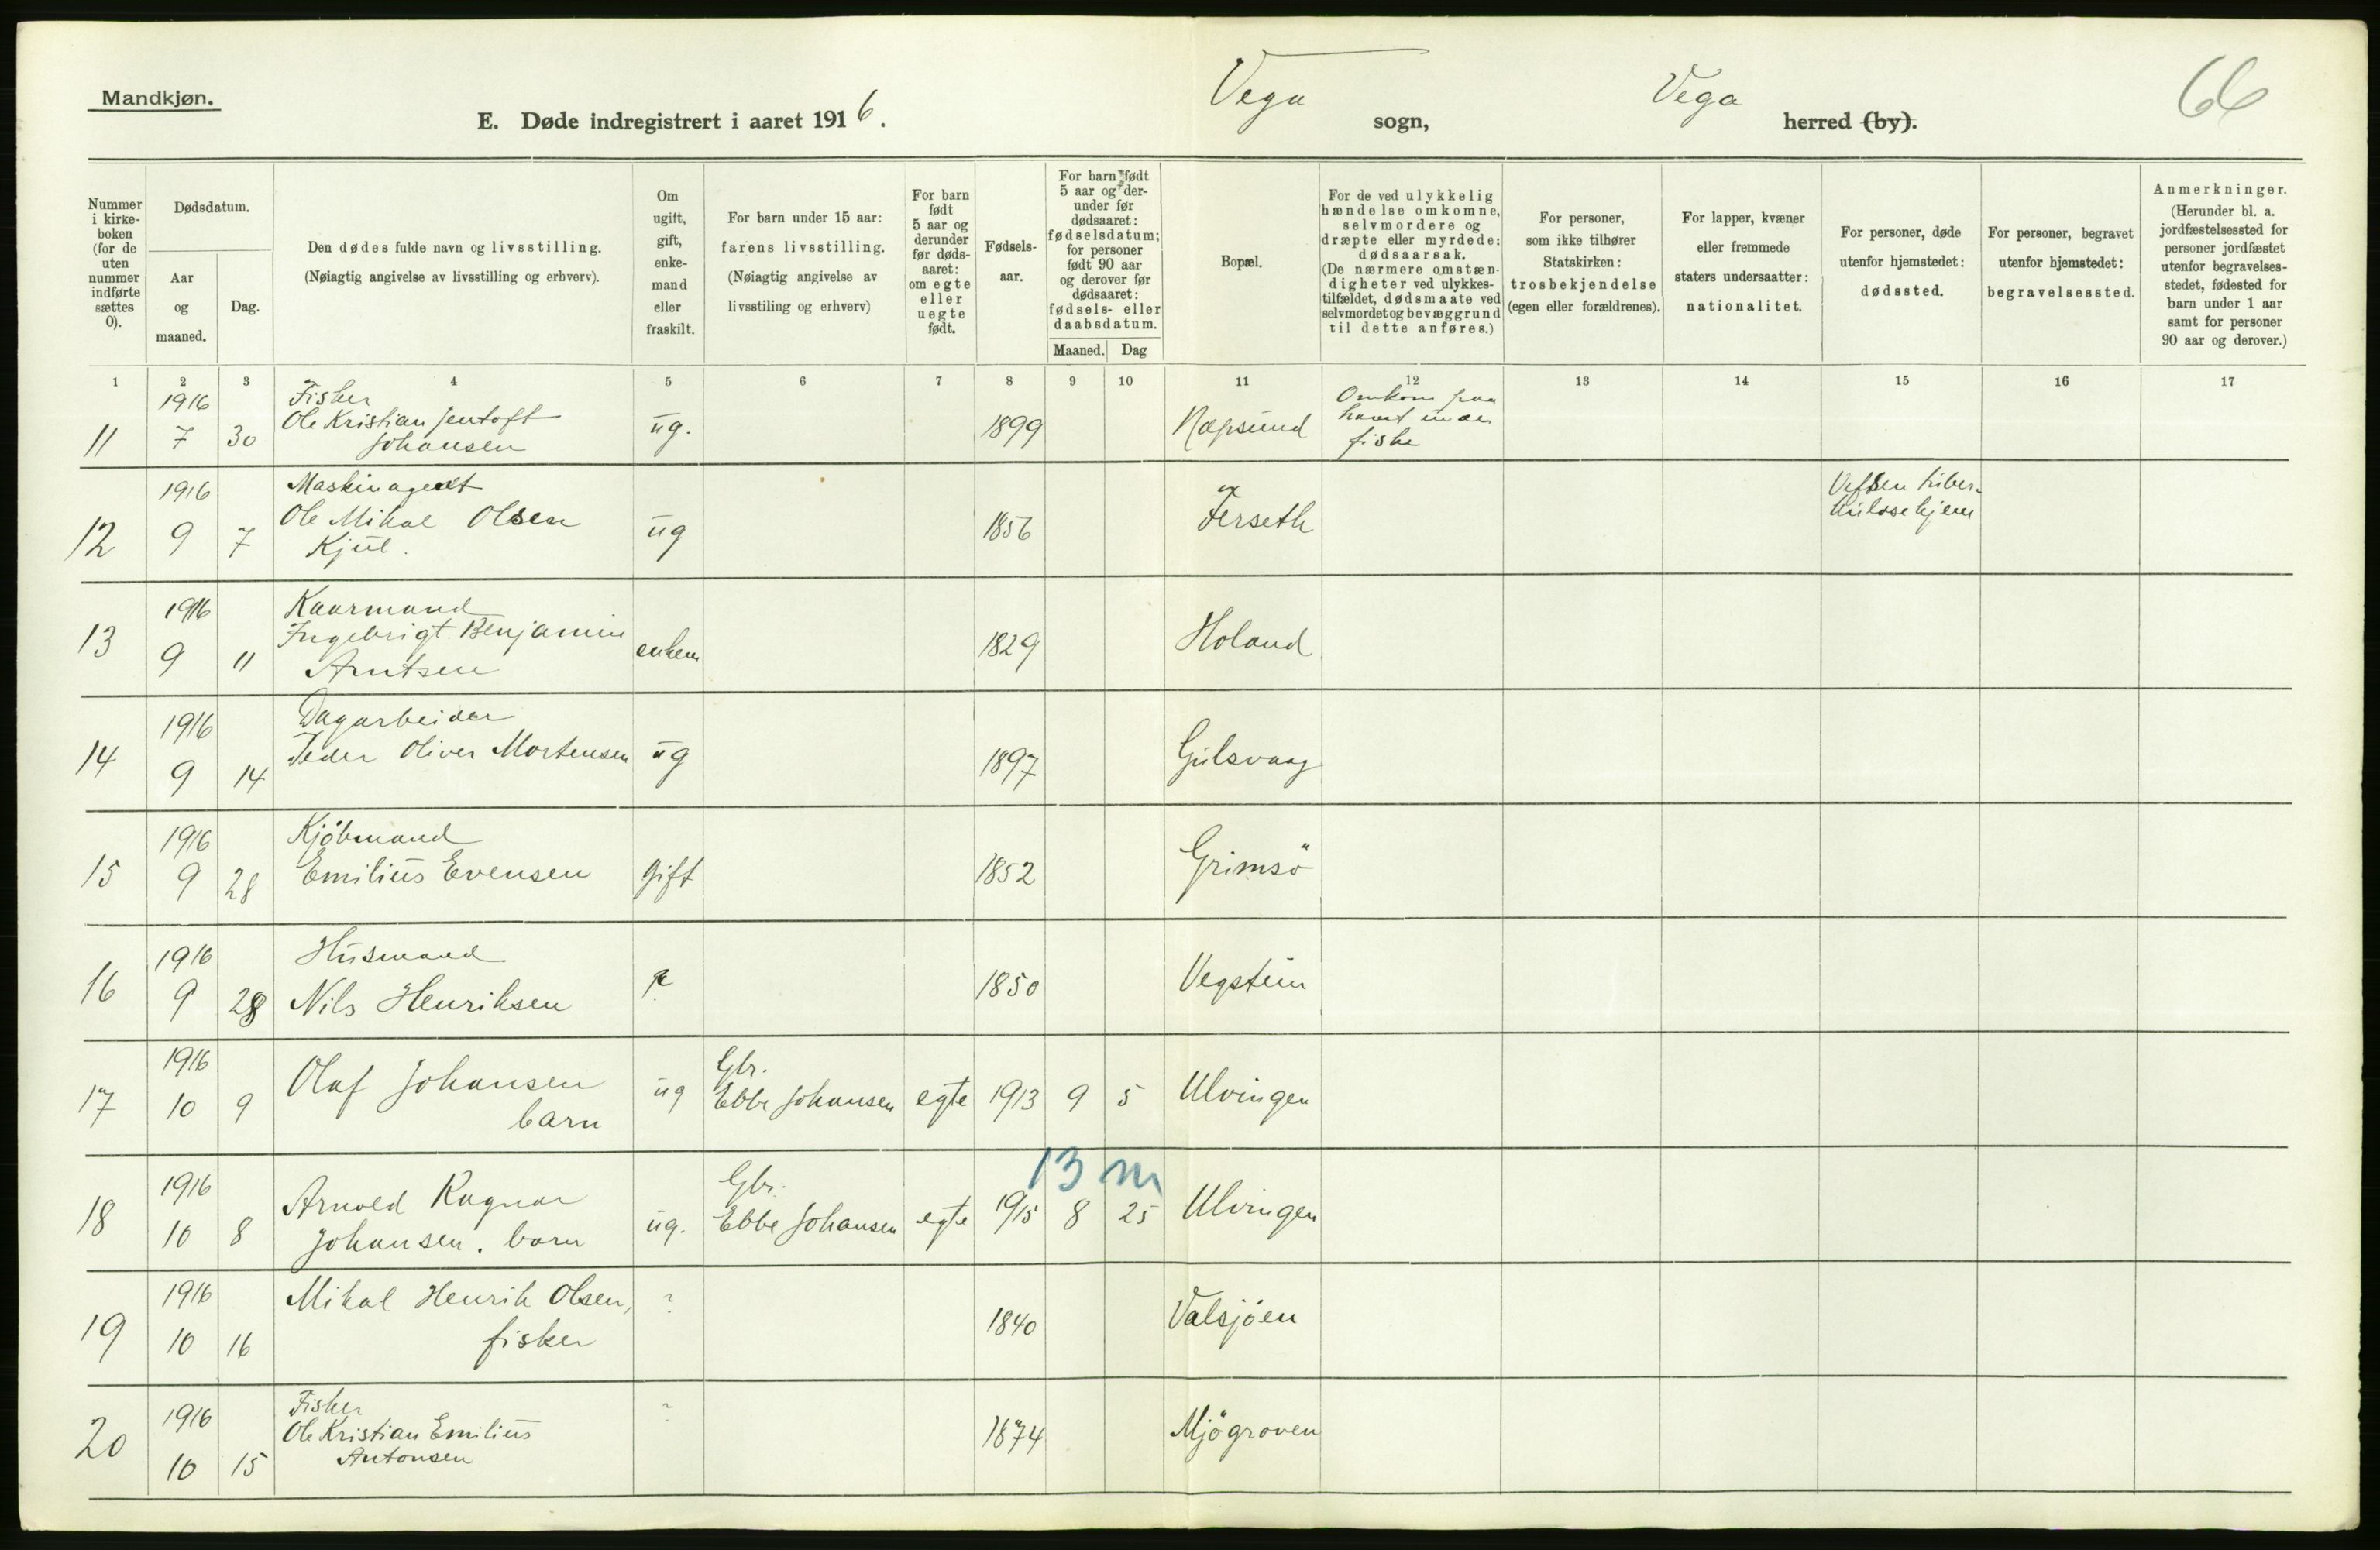 Mandkjøn.
E. Døde indregistrert i aaret 1916.
Vega sogn,
Vega herred (by).
66
Nummer i kirke-boken (for de uten nummer indførte sættes 0).
Dødsdatum.
Aar og maaned.
Dag.
Den dødes fulde navn og livsstilling.
(Nøiagtig angivelse av livsstilling og erhverv).
Om ugift, gift, enke-mand eller fraskilt.
For barn under 15 aar:
farens livsstilling.
(Nøiagtig angivelse av livsstiling og erhverv)
For barn født 5 aar og derunder før døds-aaret: om egte eller uegte født.
Fødsels-aar.
For barn født 5 aar og der-under før dødsaaret: fødselsdatum; for personer født 90 aar og derover før dødsaaret: fødsels- eller daabsdatum.
Maaned.
Dag
Bopæl.
For de ved ulykkelig hændelse omkomne, selvmordere og dræpte eller myrdede: dødsaarsak. (De nærmere omstæn-digheter ved ulykkes-tilfældet, dødsmaate ved selvmordet og bevæggrund til dette anføres.)
For personer, som ikke tilhører Statskirken: trosbekjendelse (egen eller forældrenes).
For lapper, kvæner eller fremmede staters undersaatter: nationalitet.
For personer, døde utenfor hjemstedet: dødssted.
For personer, begravet utenfor hjemstedet: begravelsessted.
Anmerkninger.
(Herunder bl. a. jordfæstelsessted for personer jordfæstet utenfor begravelses-stedet, fødested for barn under 1 aar samt for personer 90 aar og derover.)
1 2 3 4 5 6 7 8 9 10 11 12 13 14 15 16 17
1916 Fisker Omkom paa
11 7 30 Ole Kristian Jentoft ug. 1899 Napsund havet under
Johansen fiske
1916 Maskinagent Vefsen tuber-
12 9 7 Ole Mikal Olsen ug 1856 Ferseth kulosehjem
Kjul.
1916 Kaarmand
13 9 11 Ingebrigt Benjamin enkem 1829 Holand
Arntsen
1916 Dagarbeider
14 9 14 Peder Oliver Mortensen ug 1897 Gulsvaag
1916 Kjöbmand
15 9 28 Emilius Evensen gift 1852 Grimsö
1916 Husmand
16 9 28 Nils Henriksen ? 1850 Vegstein
1916 Gbr.
17 10 9 Olaf Johansen ug Ebbe Johansen egte 1913 9 5 Ulvingen
barn
13 m
1916 Gbr.
18 10 8 Arnold Ragnar ug. Ebbe Johansen egte 1915 8 25 Ulvingen
Johansen. barn
1916 Mikal Henrik Olsen, ?
19 10 16 fisker 1840 Valsjöen
1916 Fisker ?
20 10 15 Ole Kristian Emilius 1874 Mjögroven
Antonsen